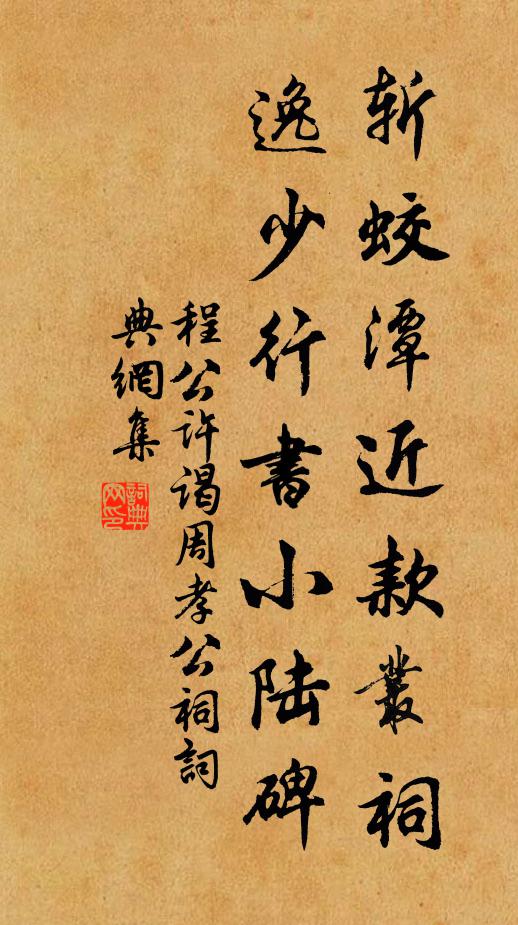 斩蛟潭近款叢祠
逸少行書小陆碑
程公许謁周孝公祠詞
典網集
詞典网印